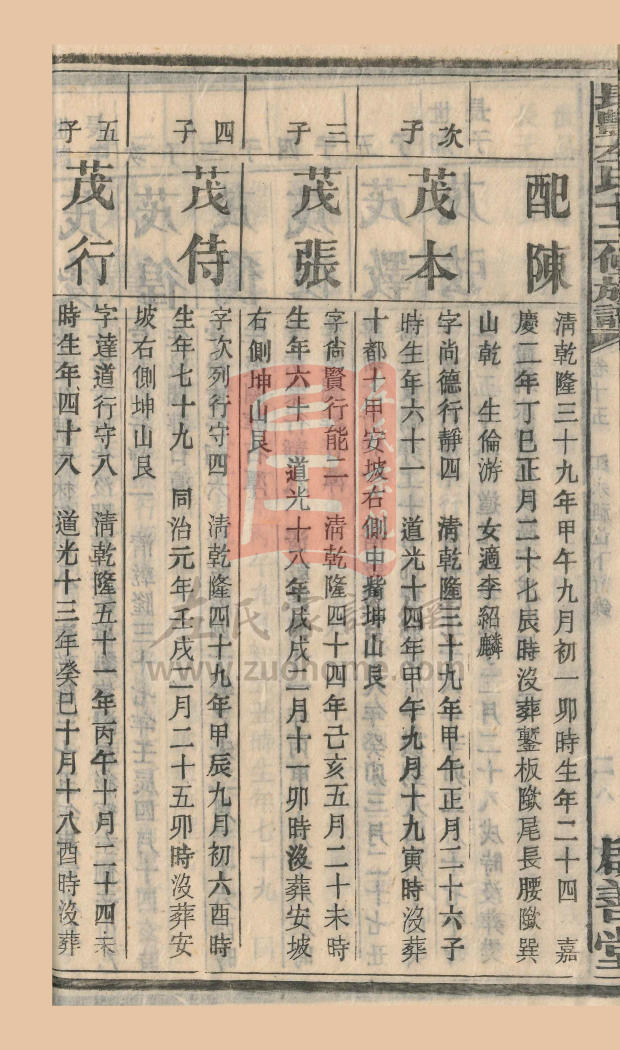 配陳
清乾隆三十九年甲午九月初一卯時生年二十四 嘉
慶二年丁巳正月二十七辰時沒葬鏨板隞尾長腰隞巽
山乾 生倫游 女適李紹麟
次子
茂本
字尚德行靜四 清乾隆三十九年甲午正月二十六子
時生年六十一 道光十四年甲午九月十九寅時沒葬
十都十甲安坡右側中嘴坤山艮
三子
茂張
字尙賢行能二 清乾隆四十四年己亥五月二十未時
生年六十 道光十八年戊戌二月十一卯時沒葬安坡
右側坤山艮
四子
茂侍
字次列行守四 清乾隆四十九年甲辰九月初六酉時
生年七十九 同治元年壬戌二月二十五卯時沒葬安
坡右側坤山艮
五子
茂行
字達道行守八 清乾隆五十一年丙午十月二十四未
時生年四十八 道光十三年癸巳十月十八酉時沒葬
左氏家譜
www.zuohome.com